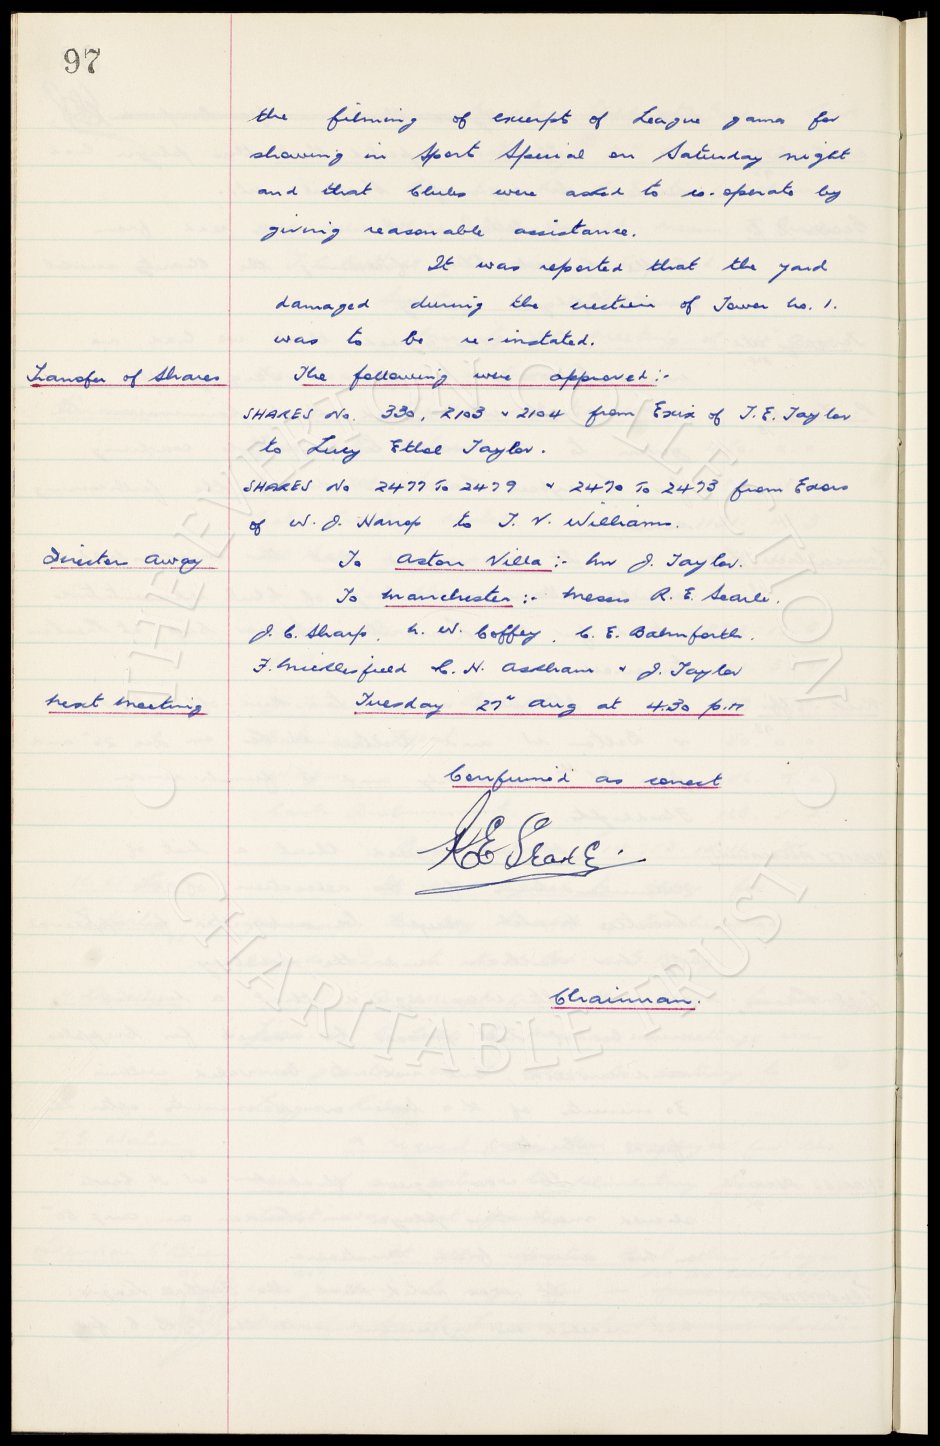 97
the filming of excerpts of League games for
showing in Sport Special on Saturday night
and that Clubs were asked to co-operate by
giving reasonable assistance.
It was reported that the yard
damaged during the erection of Tower No. 1.
was to be re-instated.
Transfer of Shares The following were approved:-
SHARES No. 330, 2103 & 2104 from Exix of T. E. Taylor
to Lucy Ethel Taylor.
SHARES No 2477 To 2479 & 2470 To 2473 from Exors
of W. J. Harrop to T. V. Williams.
Directors Away To Aston Villa:- Mr J. Taylor.
To Manchester:- Messrs R. E. Searle.
J. C. Sharp, N. W. Coffey, C. E. Balmforth.
F. Micklesfield C. H. Askham & J. Taylor
Next Meeting Tuesday 27th Aug at 4.30 p.m
Confirmed as correct
R E Searle.
Chairman.
THE EVERTON COLLECTION
CHARITABLE TRUST